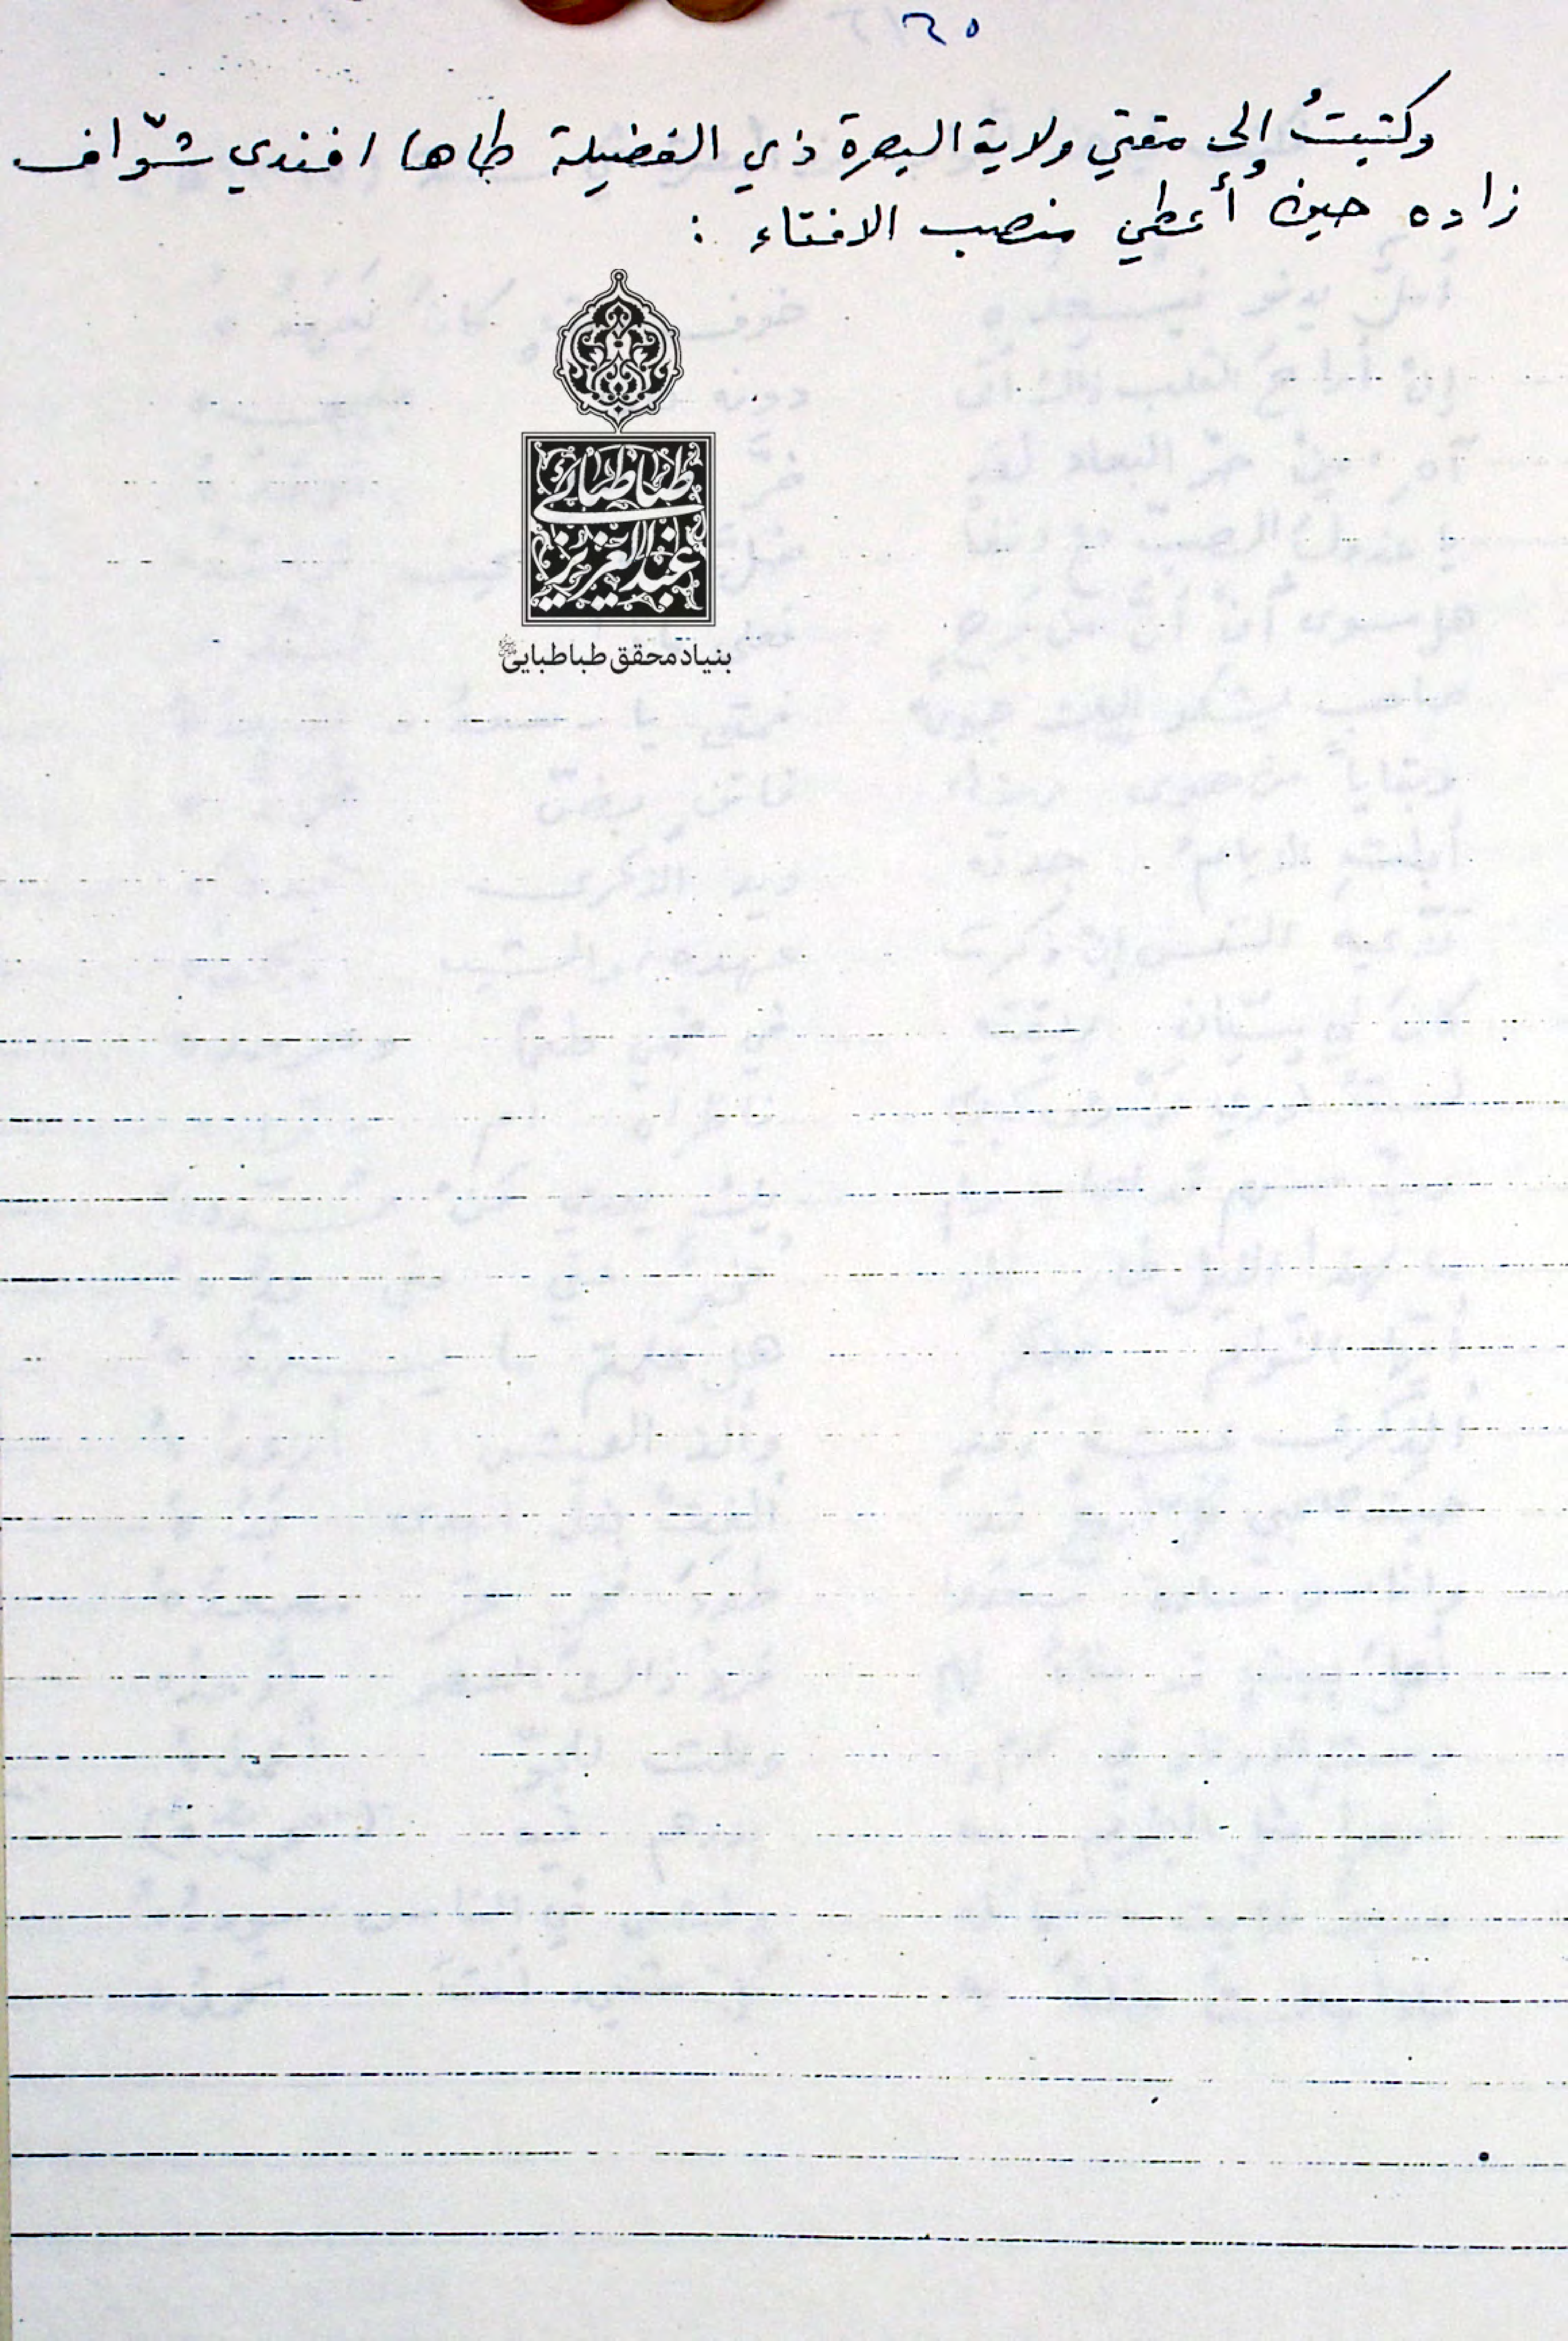 ٢٥
وكتبتُ إلى مفتي ولاية البصرة ذي الفضيلة طاها افندي شوّاف
زاده حين أُعطي منصب الافتاء :
طباطبائي
عبدالعزيز
بنیاد محقق طباطبایی